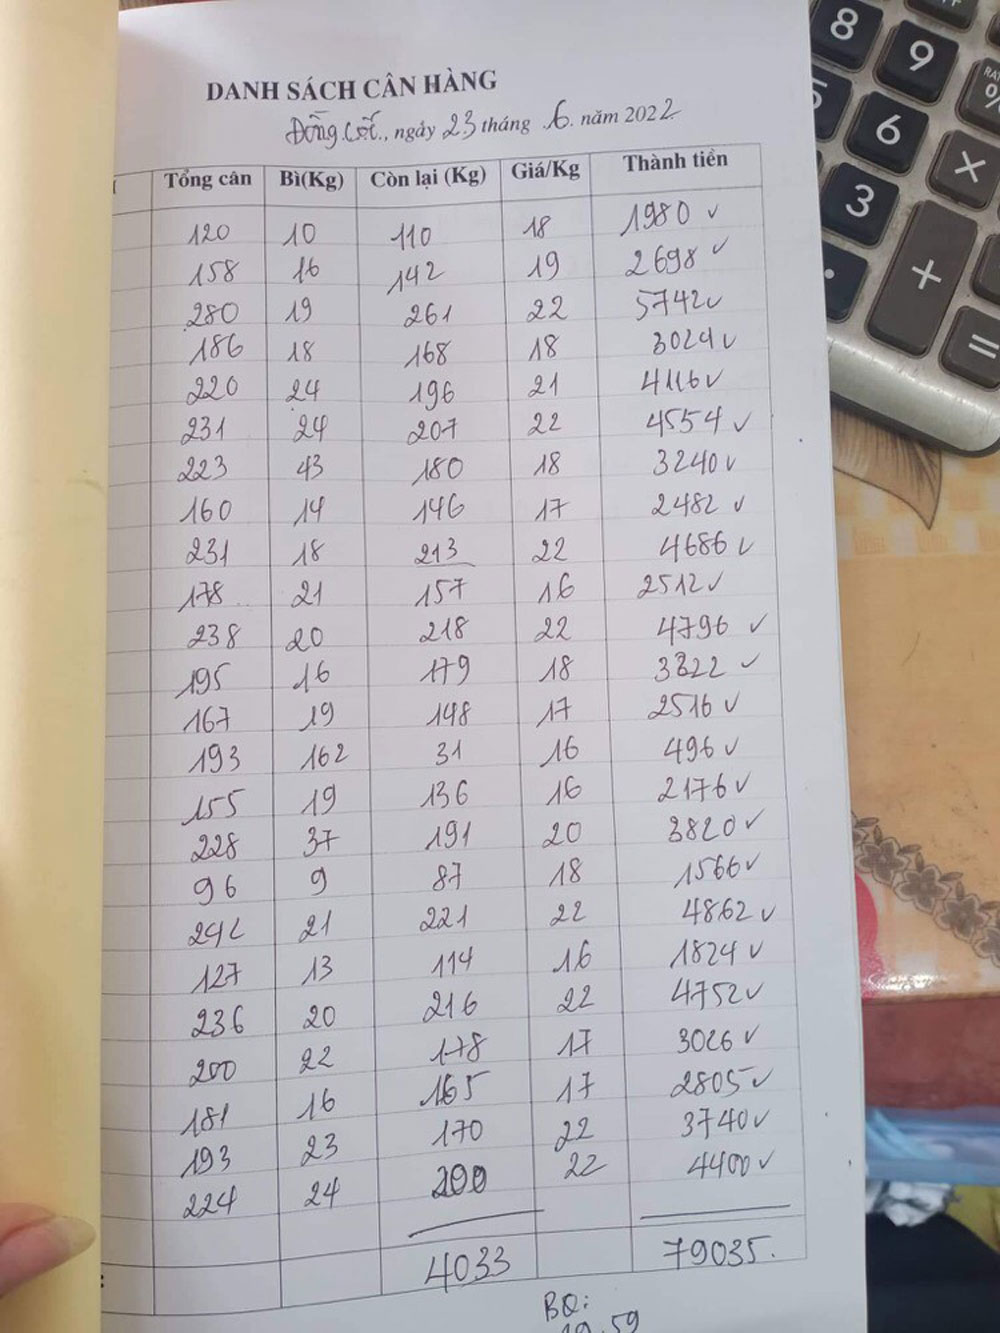 DANH SÁCH CÂN HÀNG
Đồng Cốc., ngày 23 tháng .6. năm 2022
Tổng cân Bì(Kg) Còn lại (Kg) Giá/Kg Thành tiền
120 10 110 18 1980 ✓
158 16 142 19 2698 ✓
280 19 261 22 5742 ✓
186 18 168 18 3024 ✓
220 24 196 21 4116 ✓
231 24 207 22 4554 ✓
223 43 180 18 3240 ✓
160 14 146 17 2482 ✓
231 18 213 22 4686 ✓
178 21 157 16 2512 ✓
238 20 218 22 4796 ✓
195 16 179 18 3222 ✓
167 19 148 17 2516 ✓
193 162 31 16 496 ✓
155 19 136 16 2176 ✓
228 37 191 20 3820 ✓
96 9 87 18 1566 ✓
242 21 221 22 4862 ✓
127 13 114 16 1824 ✓
236 20 216 22 4752 ✓
200 22 178 17 3026 ✓
181 16 165 17 2805 ✓
193 23 170 22 3740 ✓
224 24 200 22 4400 ✓
4033 79035.
BQ:
19,59
8
9
6
3
%
×
+
=